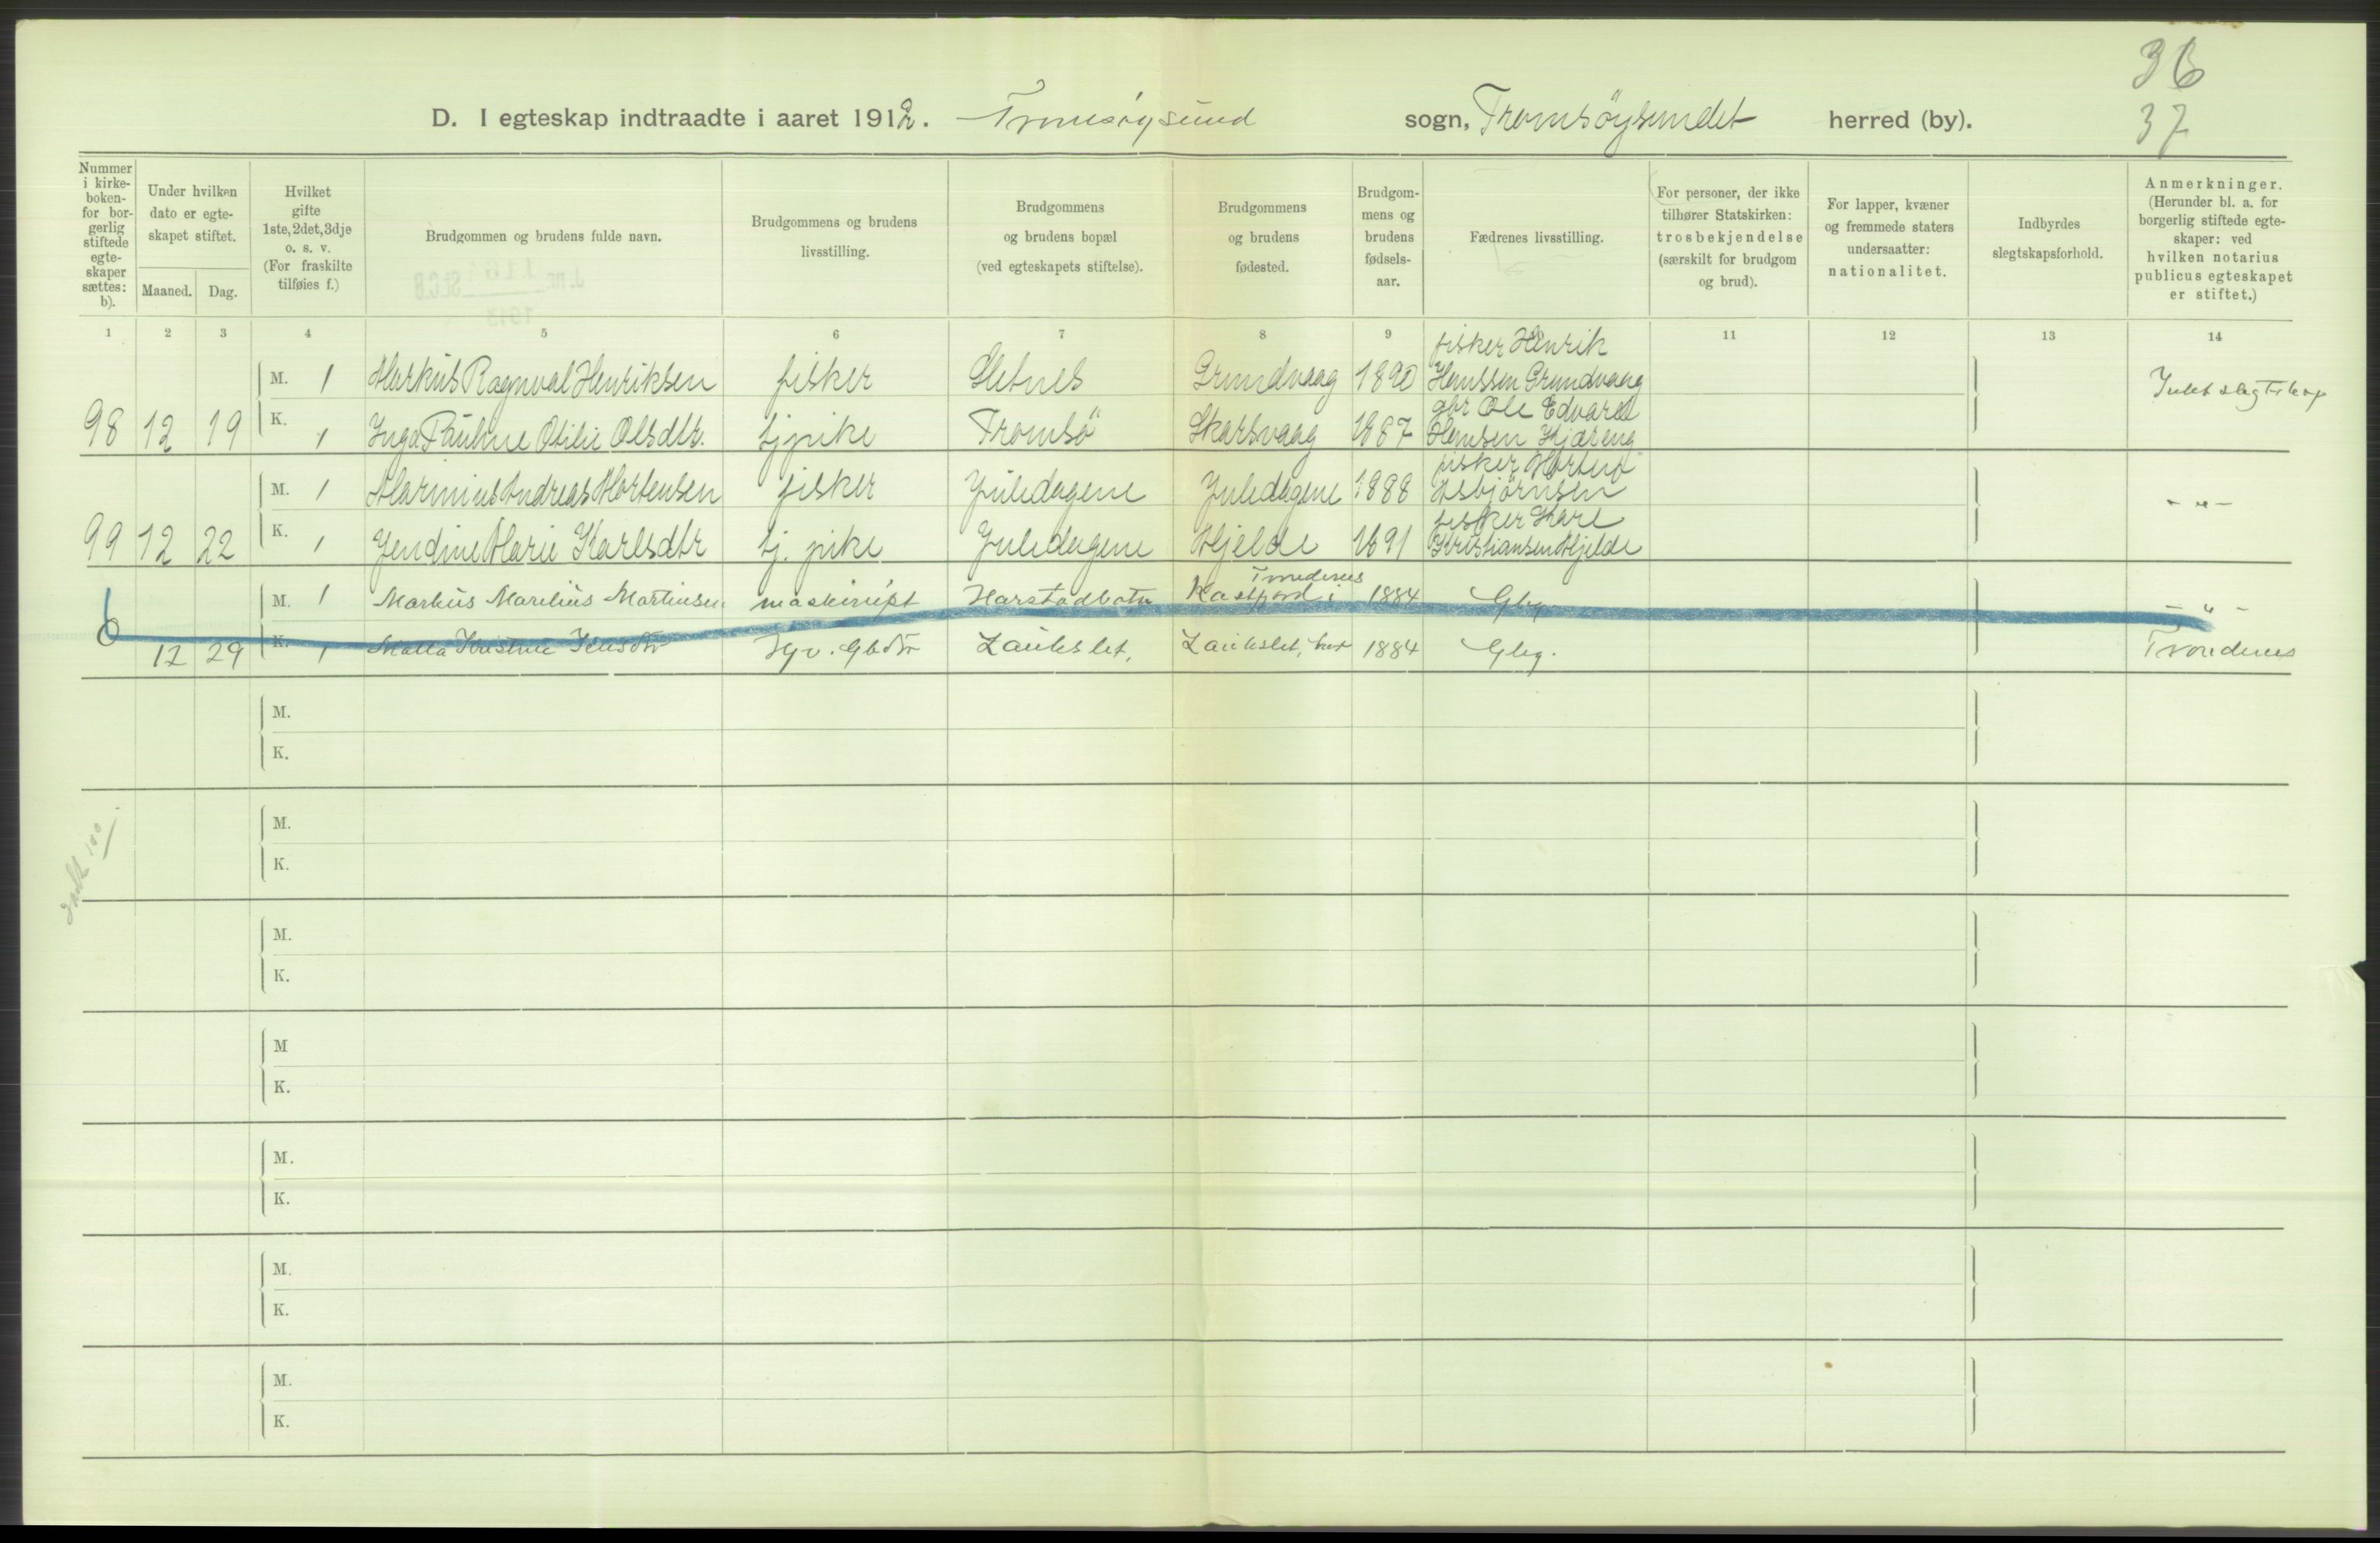 36
37
D. I egteskap indtraadte i aaret 1912. Tromsøysund sogn, Tromsöysundet herred (by).
Nummer i kirke-boken- for bor-gerlig stiftede egte-skaper sættes: b).
Under hvilken dato er egte-skapet stiftet.
Maaned. Dag.
Hvilket gifte 1ste, 2det, 3dje o. s. v. (For fraskilte tilføies f.)
Brudgommen og brudens fulde navn.
Brudgommens og brudens livsstilling.
Brudgommens og brudens bopæl (ved egteskapets stiftelse).
Brudgommens og brudens fødested.
Brudgom-mens og brudens fødsels-aar.
Fædrenes livsstilling.
For personer, der ikke tilhører Statskirken: trosbekjendelse (særskilt for brudgom og brud).
For lapper, kvæner og fremmede staters undersaatter: nationalitet.
Indbyrdes slegtskapsforhold.
Anmerkninger. (Herunder bl. a. for borgerlig stiftede egte-skaper: ved hvilken notarius publicus egteskapet er stiftet.)
1 2 3 4 5 6 7 8 9 11 12 13 14
M. 1 Markus Ragnval Henriksen fisker Sletnes Grundvaag 1890 fisker Henrik Hanssen Grundvaag Intet slegtskap
98 12 19 K. 1 Inga Pauline Otilie Olsdtr. tjpike Tromsö Skarsvaag 1887 gbr Ole Edvard Hansen Kjæreng
M. 1 Marinius Andreas Mortensen fisker Juledagene Juledagene 1888 fisker Morten Asbjörnsen - " -
99 12 22 K. 1 Jendine Marie Karlsdtr tj. pike Juledagene Mjelde 1891 fisker Karl Kristiansen Mjelde
M. 1 Markus Marelius Martinsen maskinist Harstadbotn Kastfjord i Trondenes 1884 Gbr. - " -
12 29 K. 1 Kristine Jensdtr Laukslet, Laukslet, her 1884 Gbr. Trondenes
M.
K.
M.
K.
M.
K.
M
K.
M.
K.
M.
K.
M.
K.